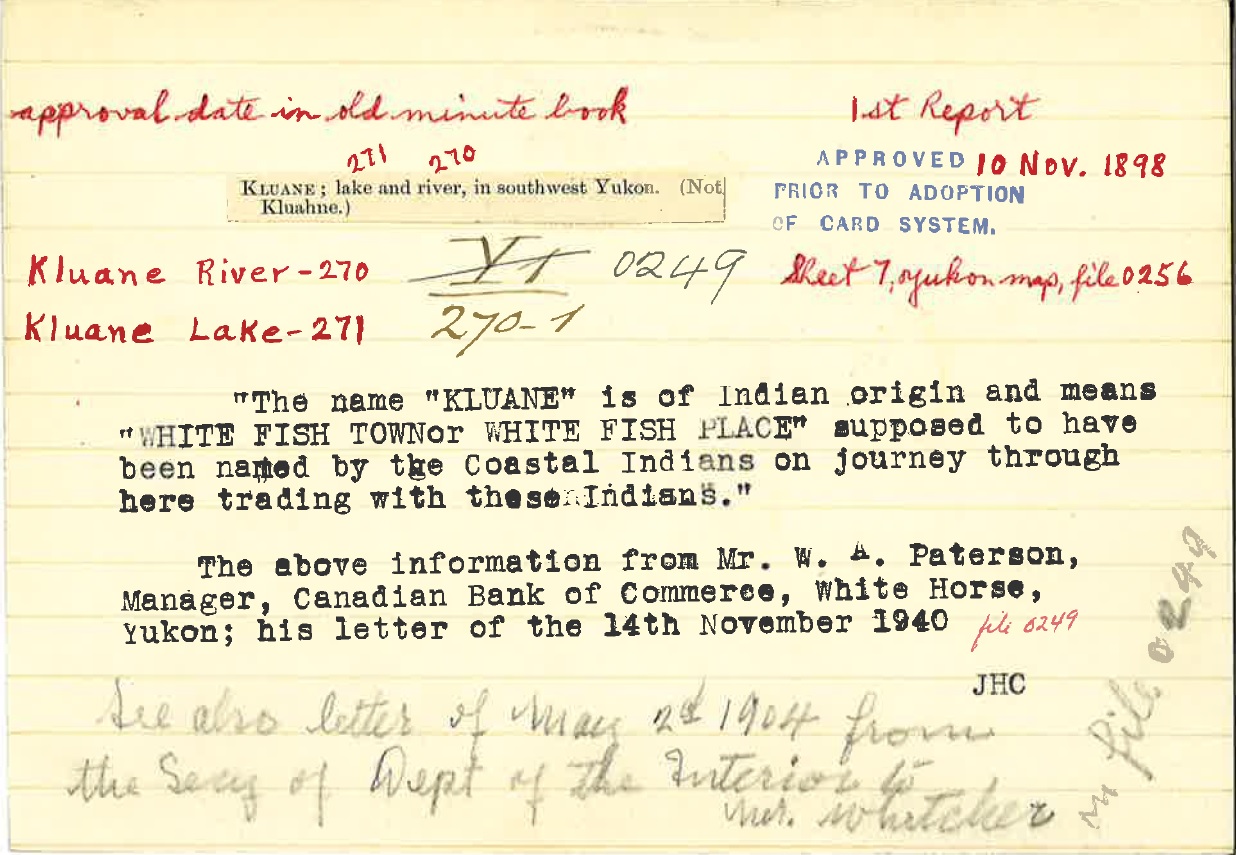 approval date in old minute book
1st Report
271 270
KLUANE; lake and river, in southwest Yukon. (Not
Kluahne.)
APPROVED 10 Nov. 1898
PRIOR TO ADOPTION
OF CARD SYSTEM.
Kluane River-270
YT 0249
Sheet 7, Yukon map, file 0256
Kluane Lake-271
270-1
"The name "KLUANE" is of Indian origin and means
"WHITE FISH TOWNor WHITE FISH PLACE" supposed to have
been named by the Coastal Indians on journey through
here trading with these Indians."
The above information from Mr. W. A. Paterson,
Manager, Canadian Bank of Commerce, White Horse,
Yukon; his letter of the 14th November 1940 file 0249
JHC
See also letter of May 2d 1904 from
the Secy of Dept of the Interior to
Mr. Whitcher
in file 0249